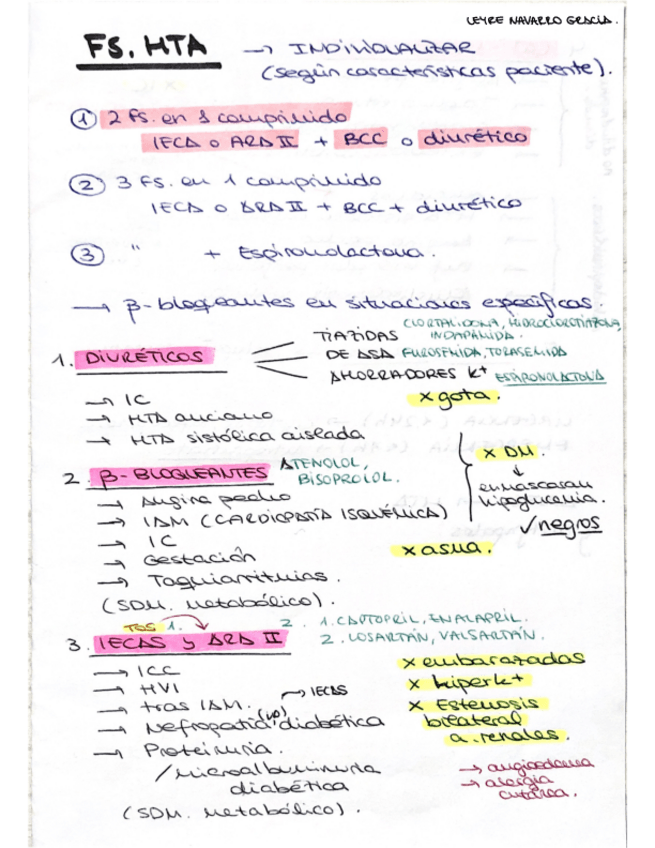 LEYRE NAVARRO GRACIA.
FS. HTA → INDIVIDUALIZAR
(según características paciente).
① 2 FS. en 1 comprimido
IECA o ARA II + BCC o diurético
② 3 FS. en 1 comprimido
IECA o ARA II + BCC + diurético
③ " + Espironolactona.
→ β-bloqueantes en situaciones específicas.
1. DIURÉTICOS
TIAZIDAS CLORTALIDONA, HIDROCLOROTIAZIDA, INDAPAMIDA.
DE ASA FUROSEMIDA, TORASEMIDA
AHORRADORES K+ ESPIRONOLACTONA
→ IC
x gota.
→ HTA anciano
→ HTA sistólica aislada
2. β-BLOQUEANTES ATENOLOL, BISOPROLOL.
x DM.
↓
enmascaran
hipoglucemia.
✓ negros
→ Angina pecho
→ IAM (CARDIOPATÍA ISQUÉMICA)
→ IC
→ Gestación
x asma.
→ Taquiarritmias.
(SDM. metabólico).
TOS 1. 2.
3. IECAS y ARA II
1. CAPTOPRIL, ENALAPRIL.
2. LOSARTÁN, VALSARTÁN.
→ ICC
→ HVI
→ tras IAM.
→ Nefropatía diabética → IECAS
→ Proteinuria.
/microalbuminuria
diabética
(SDM. metabólico).
x embarazadas
x hiperK+
x Estenosis
bilateral
a. renales.
→ angioedema
→ alergia
cutánea.